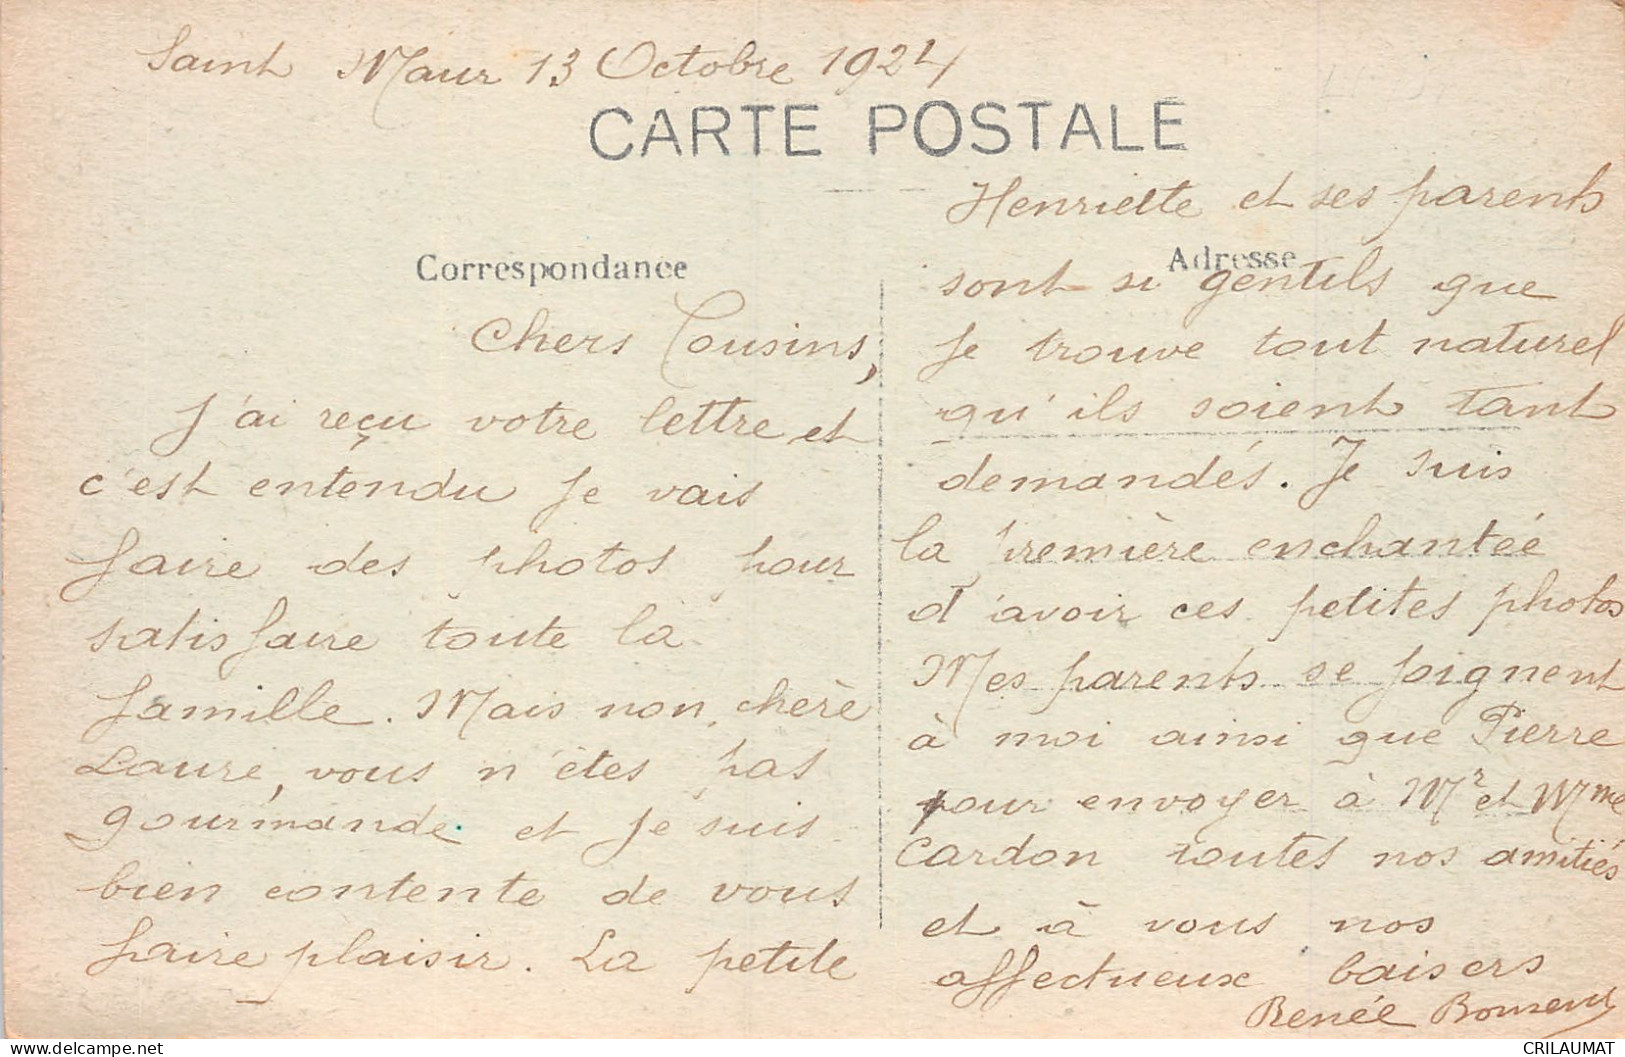 Saint Maur 13 Octobre 1924
CARTE POSTALE
Correspondance
Chers Cousins,
J'ai reçu votre lettre et
c'est entendu je vais
faire des photos pour
satisfaire toute la
famille. Mais non, chère
Laure, vous n'êtes pas
gourmande et je suis
bien contente de vous
faire plaisir. La petite
Adresse
Henriette et ses parents
sont si gentils que
je trouve tout naturel
qu'ils soient tant
demandés. Je suis
la première enchantée
d'avoir ces petites photos
Mes parents se joignent
à moi ainsi que Pierre
pour envoyer à Mr et Mme
Cardon toutes nos amitiés
et à vous nos
affectueux baisers
Renée
delcampe.net
CRILAUMAT